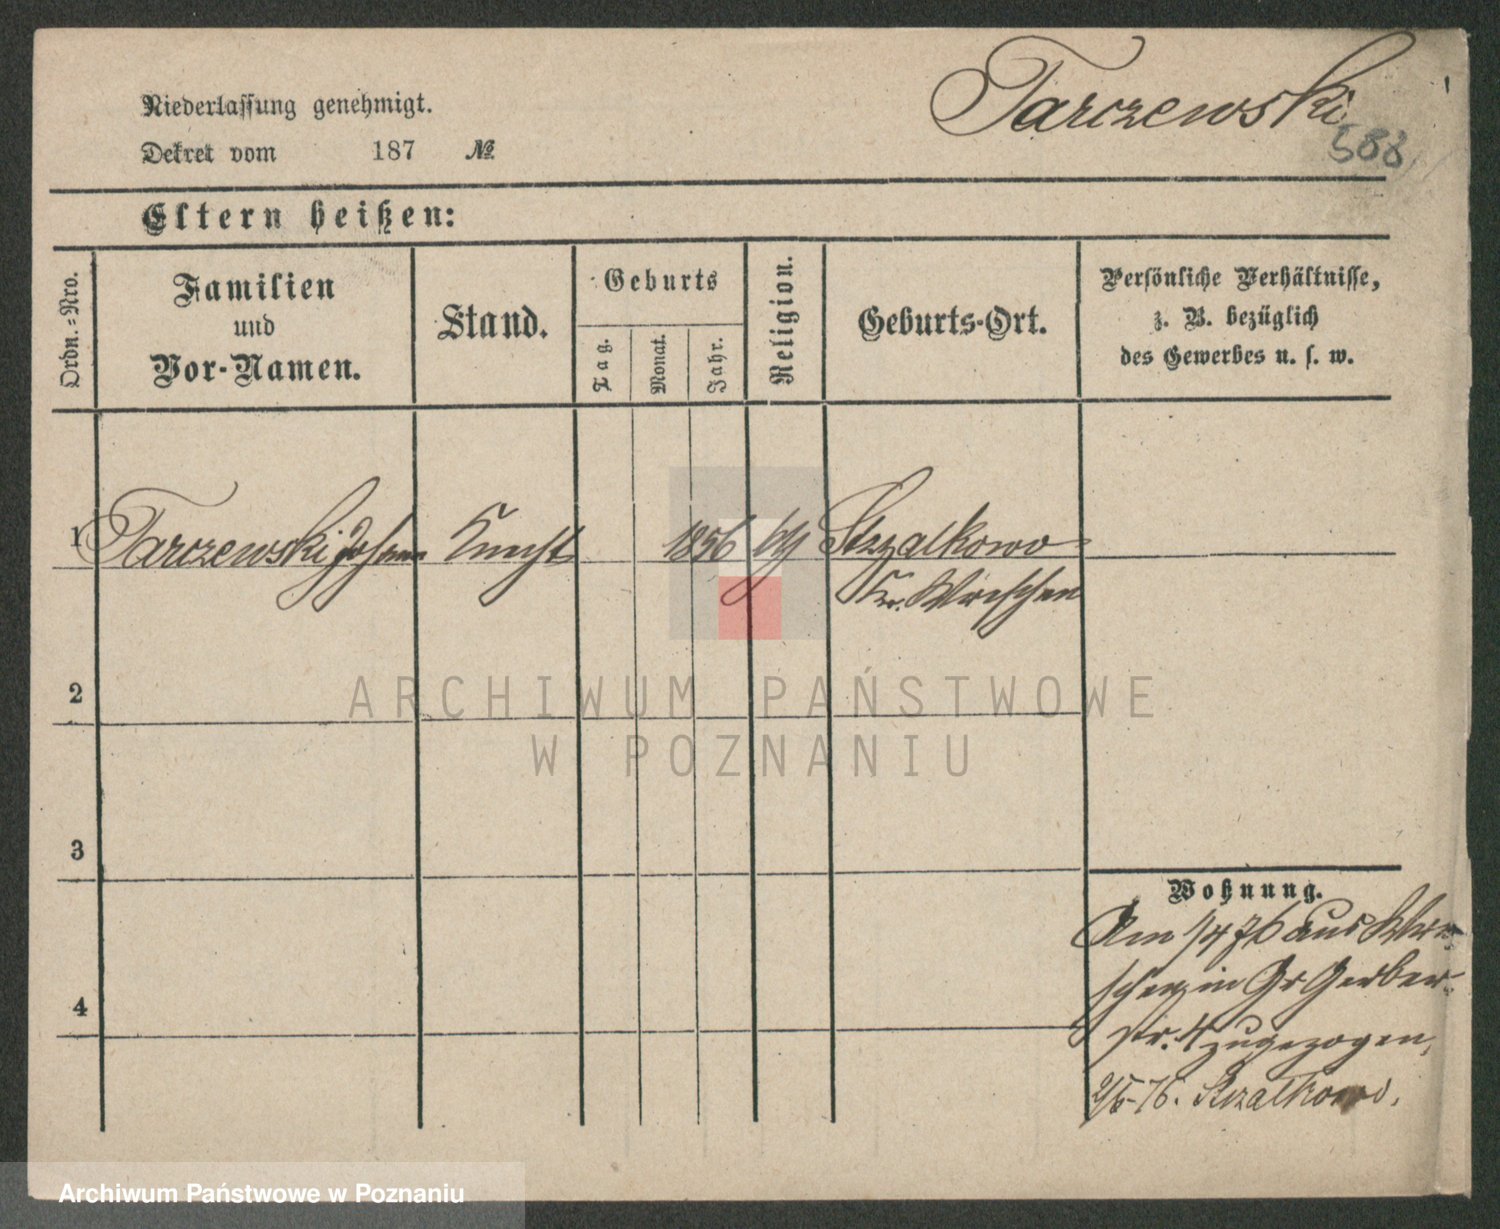 Tarczewski
588
Niederlassung genehmigt.
Dekret vom 187 №
Eltern heißen:
Ordn.=Nro.
Familien
und
Vor-Namen.
Stand.
Geburts
Tag.
Monat.
Jahr.
Religion.
Geburts-Ort.
Persönliche Verhältnisse,
z. B. bezüglich
des Gewerbes u. s. w.
1 Tarczewski Johann Knecht 1856 Strzalkowo
Kr. Wreschen
2
3
4
Wohnung.
Am 1/4 76 aus Wre-
schen in Gr Gerber-
str. 4 zugezogen,
2/5-76. Strzalkowo.
ARCHIWUM PAŃSTWOWE
W POZNANIU
Archiwum Państwowe w Poznaniu